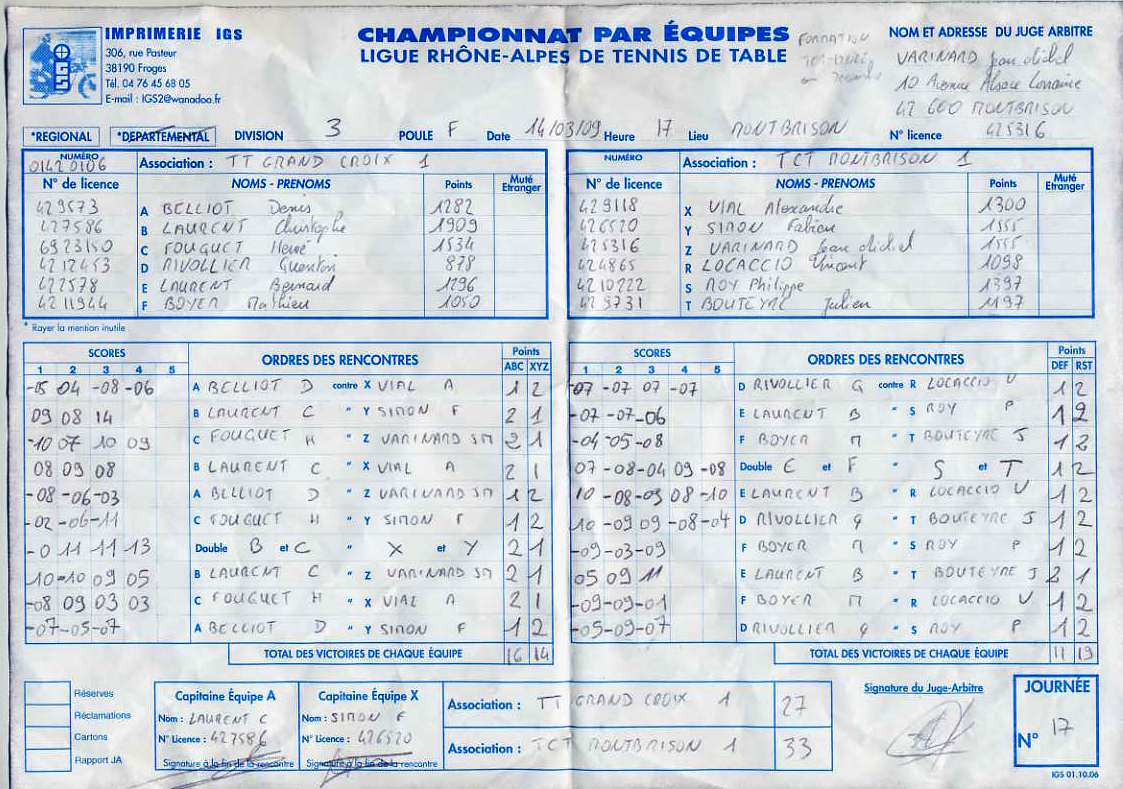 IMPRIMERIE IGS
306, rue Pasteur
38190 Froges
Tél. 04 76 45 68 05
E-mail : IGS2@wanadoo.fr
IGS
CHAMPIONNAT PAR ÉQUIPES
LIGUE RHÔNE-ALPES DE TENNIS DE TABLE
FORMATION
NOM ET ADRESSE DU JUGE ARBITRE
VARINARD Jean Michel
10 Avenue Alsace Lorraine
42 600 MONTBRISON
*REGIONAL *DEPARTEMENTAL DIVISION 3 POULE F Date 14/03/09 Heure 17 Lieu MONTBRISON N° licence 425316
NUMÉRO 01420106 Association : TT GRAND CROIX 1
N° de licence NOMS - PRENOMS Points Muté Etranger
429573 A BELLIOT Denis 1282
427586 B LAURENT Christophe 1909
6923150 C FOUQUET Hervé 1534
4212453 D RIVOLLIER Quentin 878
422578 E LAURENT Bernard 1296
4211944 F BOYER Mathieu 1050
* Rayer la mention inutile
NUMÉRO Association : TCT MONTBRISON 1
N° de licence NOMS - PRENOMS Points Muté Etranger
429118 X VIAL Alexandre 1300
426520 Y SIMON Fabien 1555
425316 Z VARINARD Jean Michel 1555
424865 R LOCACCIO Vincent 1098
4210222 S ROY Philippe 1397
429731 T BOUTEYRE Julien 1197
SCORES ORDRES DES RENCONTRES Points
1 2 3 4 5 ABC XYZ
-05 04 -08 -06 A BELLIOT D contre X VIAL A 1 2
09 08 14 B LAURENT C " Y SIMON F 2 1
-10 07 10 09 C FOUQUET H " Z VARINARD JM 2 1
08 09 08 B LAURENT C " X VIAL A 2 1
-08 -06 -03 A BELLIOT D " Z VARINARD JM 1 2
-02 -06 -11 C FOUQUET H " Y SIMON F 1 2
-0 11 11 13 Double B et C " X et Y 2 1
10 -10 09 05 B LAURENT C " Z VARINARD JM 2 1
-08 09 03 03 C FOUQUET H " X VIAL A 2 1
-07 -05 -07 A BELLIOT D " Y SIMON F 1 2
TOTAL DES VICTOIRES DE CHAQUE ÉQUIPE 16 14
SCORES ORDRES DES RENCONTRES Points
1 2 3 4 5 DEF RST
-07 -07 07 -07 D RIVOLLIER Q contre R LOCACCIO V 1 2
-07 -07 -06 E LAURENT B " S ROY P 1 2
-04 -05 -08 F BOYER M " T BOUTEYRE J 1 2
07 -08 -04 09 -08 Double E et F " S et T 1 2
10 -08 -09 08 -10 E LAURENT B " R LOCACCIO V 1 2
10 -09 09 -08 -04 D RIVOLLIER Q " T BOUTEYRE J 1 2
-09 -03 -09 F BOYER M " S ROY P 1 2
05 09 11 E LAURENT B " T BOUTEYRE J 2 1
-09 -09 -01 F BOYER M " R LOCACCIO V 1 2
-05 -09 -07 D RIVOLLIER Q " S ROY P 1 2
TOTAL DES VICTOIRES DE CHAQUE ÉQUIPE 11 19
Réserves
Réclamations
Cartons
Rapport JA
Capitaine Équipe A
Nom : LAURENT C
N° Licence : 427586
Signature à la fin de la rencontre
Capitaine Équipe X
Nom : SIMON F
N° Licence : 426520
Signature à la fin de la rencontre
Association : TT GRAND CROIX 1 27
Association : TCT MONTBRISON 1 33
Signature du Juge-Arbitre
JOURNÉE
N° 17
IGS 01.10.06